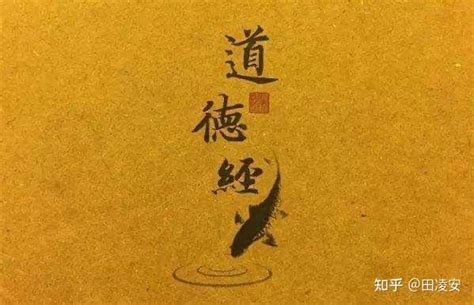 道
德
經
知乎 @田凌安